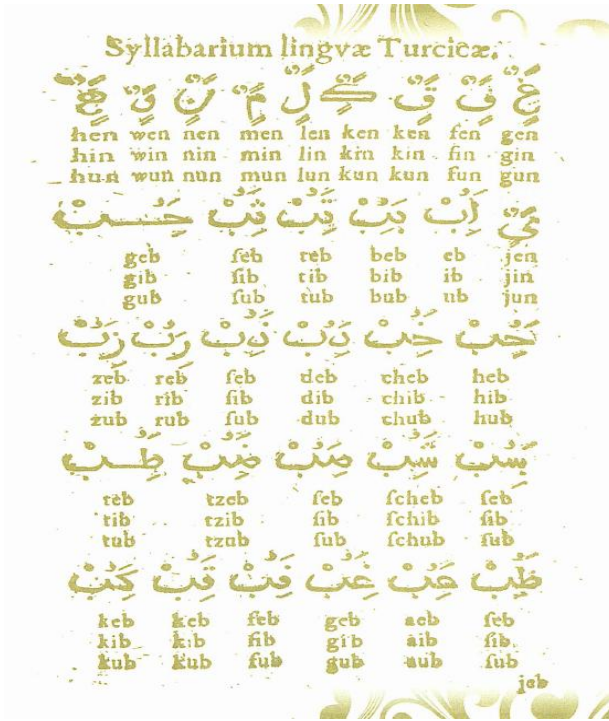 Syllabarium lingvæ Turcicæ.
غ ف ق ك ل م ن و ه
hen wen nen men len ken ken fen gen
hin win nin min lin kin kin fin gin
hun wun nun mun lun kun kun fun gun
ي اب بب تب ثب جب
geb ſeb teb beb eb jen
gib ſib tib bib ib jin
gub ſub tub bub ub jun
حب خب دب ذب رب زب
zeb reb ſeb deb cheb heb
zib rib ſib dib chib hib
zub rub ſub dub chub hub
سب شب صب ضب طب
teb tzeb ſeb ſcheb ſeb
tib tzib ſib ſchib ſib
tub tzub ſub ſchub ſub
ظب عب غب فب قب كب
keb keb feb geb aeb ſeb
kib kib fib gib aib ſib.
kub kub fub gub aub ſub
jeb